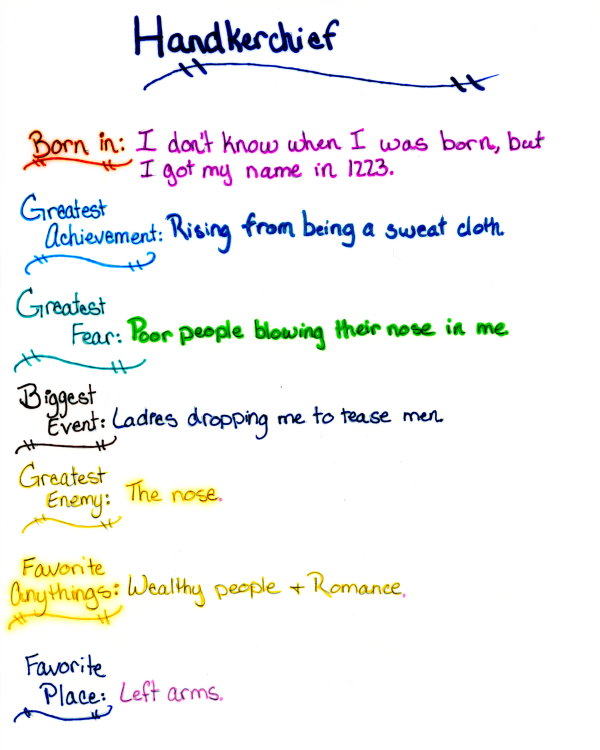 Handkerchief
Born in: I don't know when I was born, but
I got my name in 1223.
Greatest
Achievement: Rising from being a sweat cloth
Greatest
Fear: Poor people blowing their nose in me
Biggest
Event: Ladies dropping me to tease men
Greatest
Enemy: The nose.
Favorite
Anythings: Wealthy people + Romance.
Favorite
Place: Left arms.